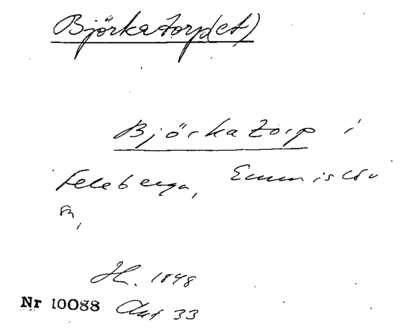 Björkatorp(et)
Björkatorp i
Feleberga, Emmislöv
sn,
H. 1848
Nr 10088 Akt 33